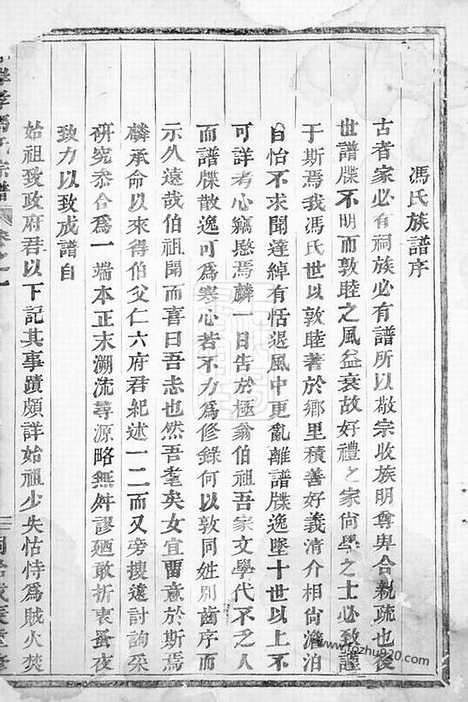 馮氏族譜序
古者家必有祠族必有譜所以敬宗收族明尊卑合親疏也後
世譜牒不明而敦睦之風益衰故好禮之家尚學之士必致謹
于斯焉我馮氏世以敦睦著於鄉里積善好義清介相尚澹泊
自怡不求聞達綽有恬退風中更亂離譜牒逸墜十世以上不
可詳考心竊愍焉麟一日告於極翁伯祖吾家文學代不乏人
而譜牒散逸可為寒心若不力為修錄何以敦同姓別齒序而
示久遠哉伯祖聞而喜曰吾志也然吾耄矣女宜畱意於斯焉
麟承命以來得伯父仁六府君紀述一二而又旁搜遠討詢采
研究叅合為一端本正末溯流尋源略無舛謬廼敢折衷蚤夜
致力以致成譜自
始祖致政府君以下記其事蹟頗詳始祖少失怙恃為賊火焚
馮氏宗譜
卷之一
www.fozhu920.com